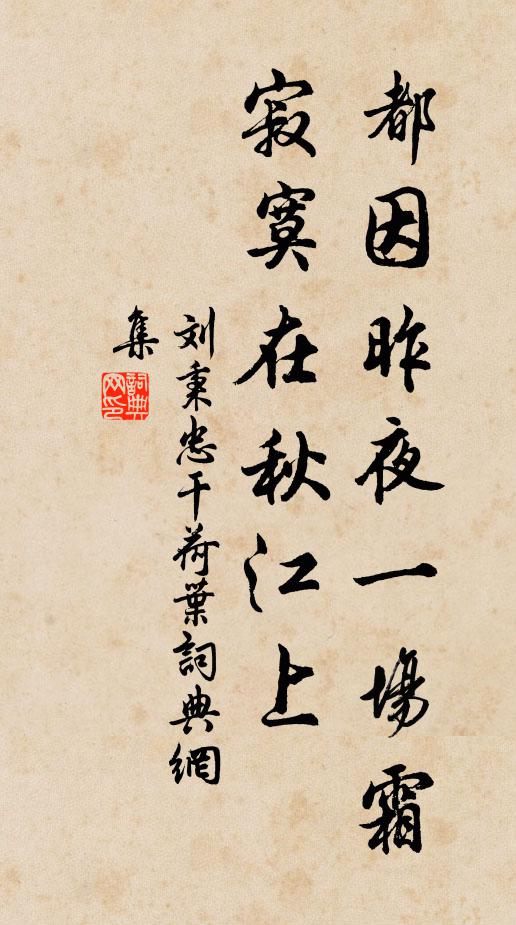 都因昨夜一場霜
寂寞在秋江上
刘秉忠干荷葉詞典網
集
詞典网印